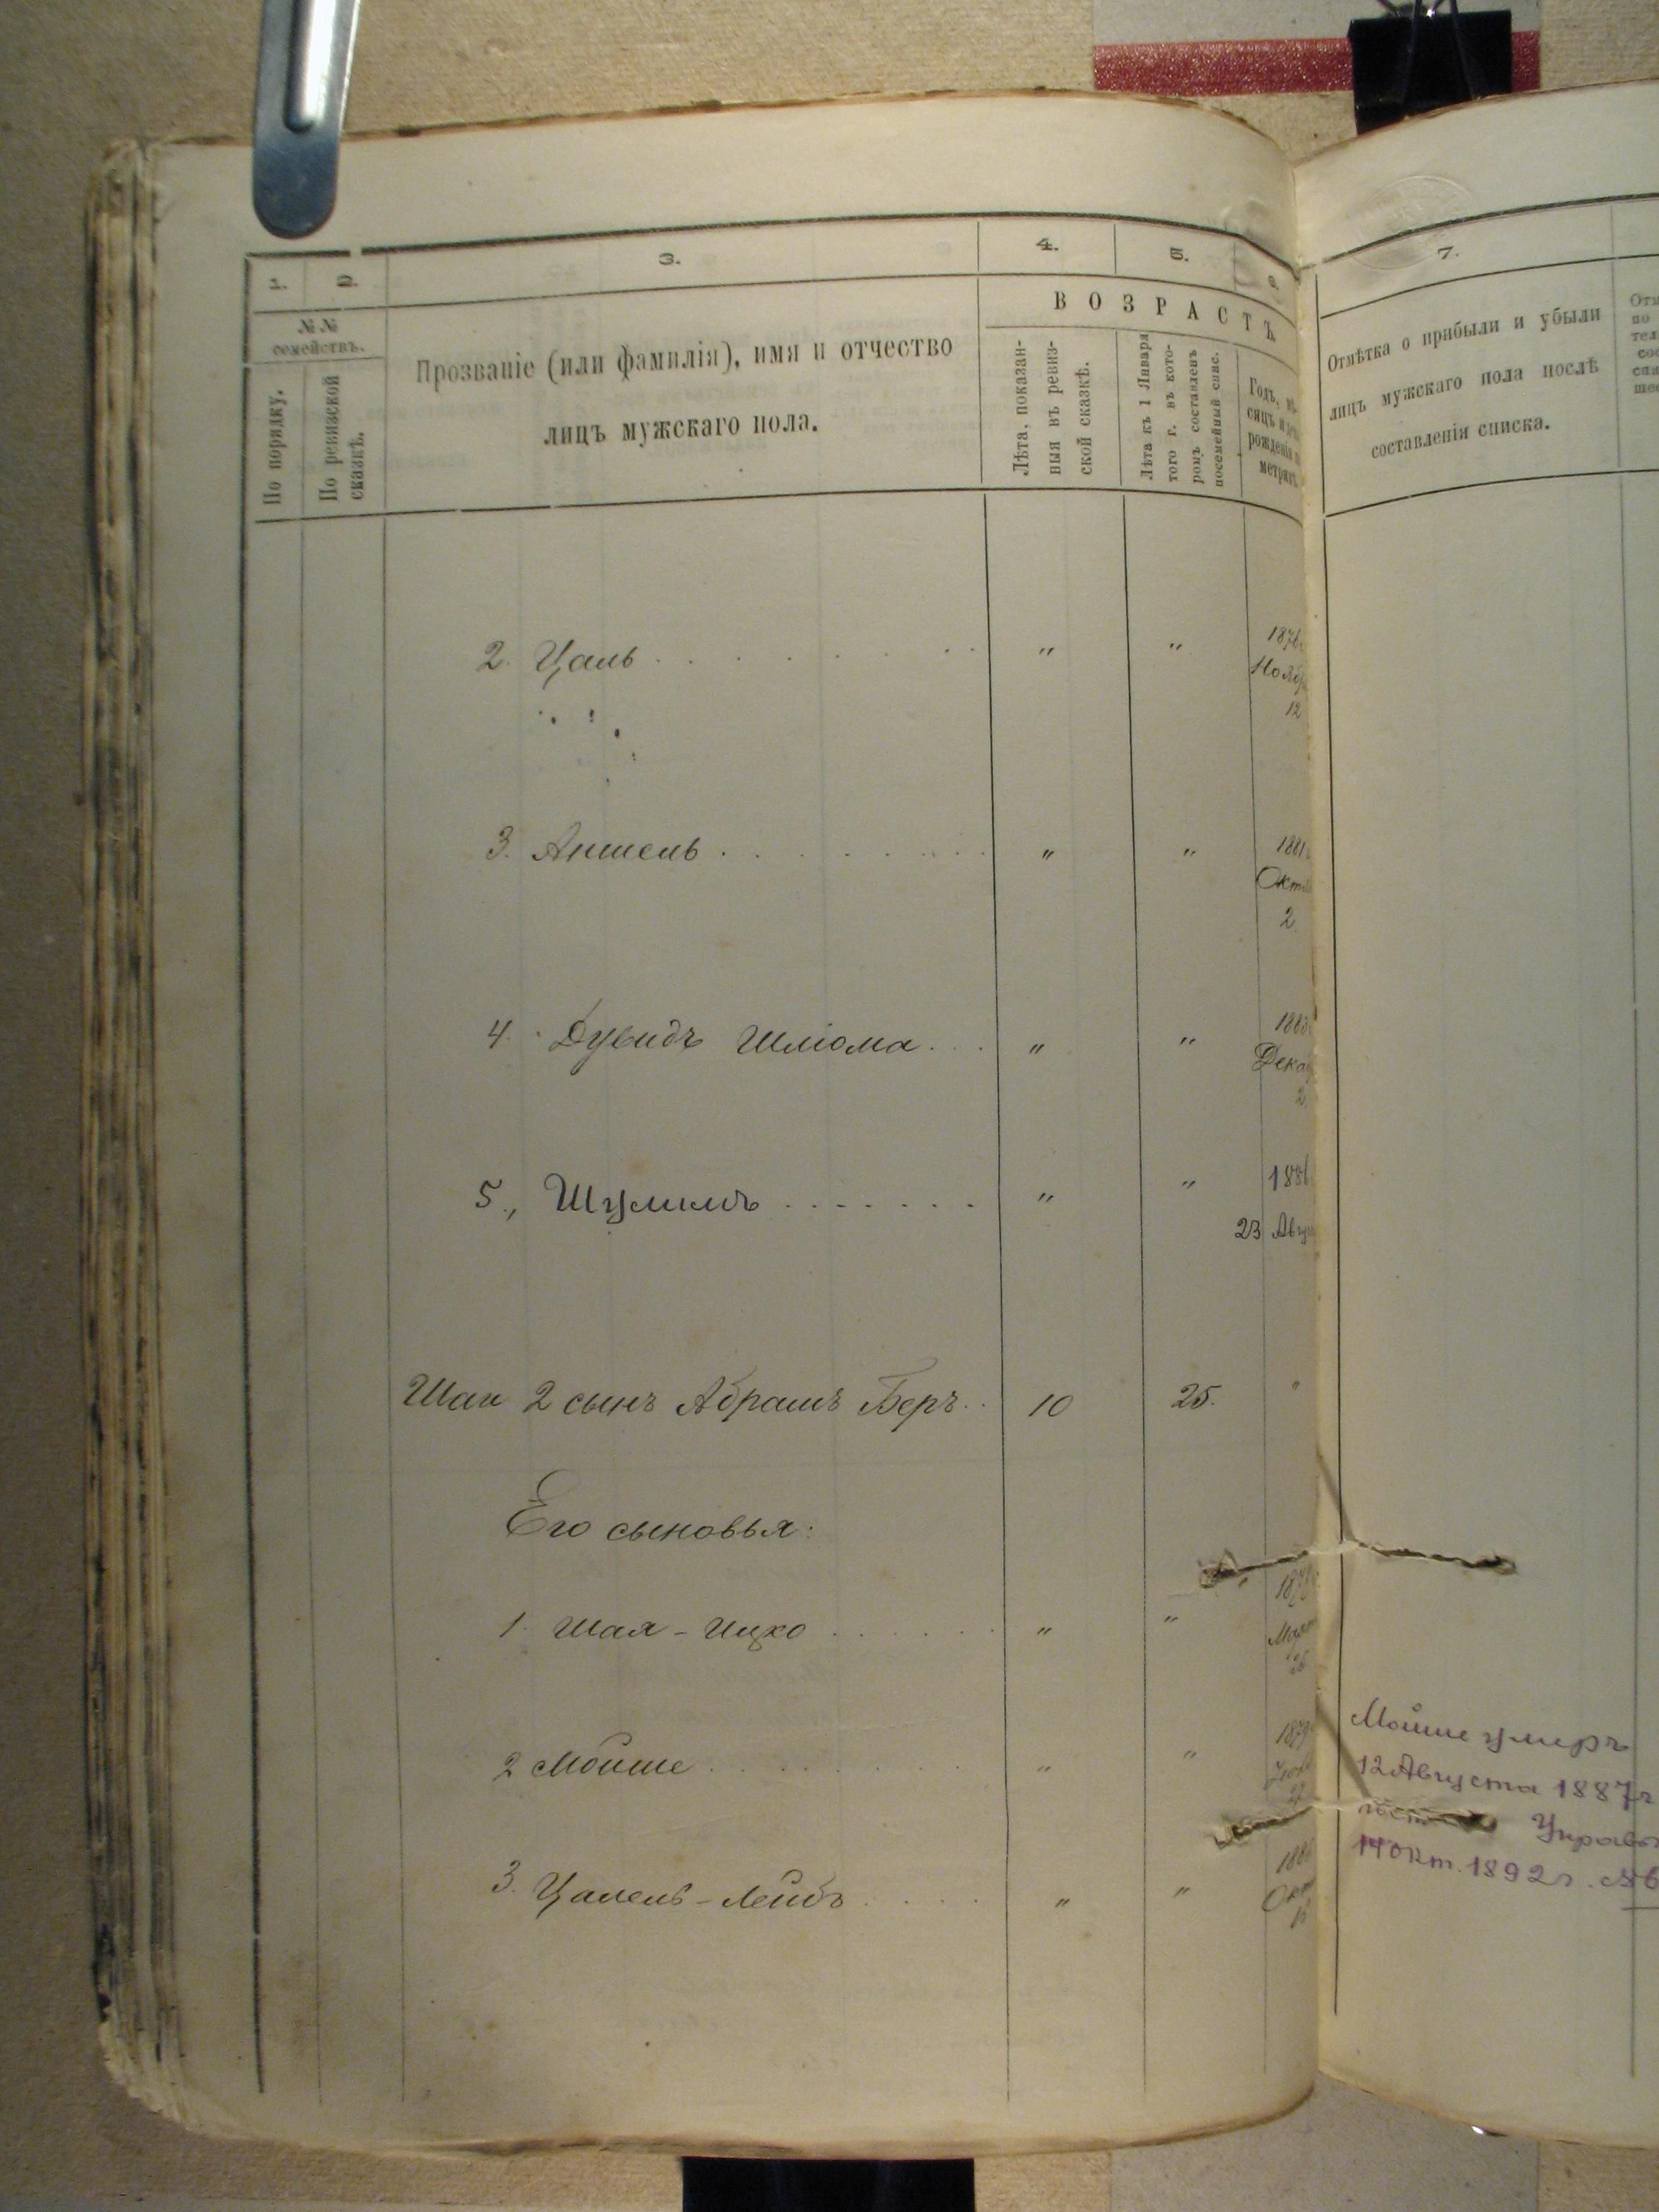 1. 2. 3. 4. 5. 6.
№ № семействъ.
По порядку.
По ревизской сказкѣ.
Прозваніе (или фамилія), имя и отчество
лицъ мужскаго пола.
ВОЗРАСТЪ.
Лѣта, показан-
ныя въ ревиз-
ской сказкѣ.
Лѣта къ 1 Января
того г. въ кото-
ромъ составленъ
посемейный спис.
Годъ, мѣ-
сяцъ и
рожденія
метрик
2. Цаль " " 1876
Нояб
12
3. Аншель " " 1881
Окт
2
4. Дувидъ Шліома " " 1883
Дека
2
5, Шулимъ " " 1886
23 Авгу
Шаи 2 сынъ Абрамъ Беръ 10 25. "
Его сыновья:
1. Шая-Ицко " " 187
Март
25
2 Мойше " " 1879
27
3. Цалель-Лейбъ " " 188
Окт
15
7.
Отмѣтка о прибыли и убыли
лицъ мужскаго пола послѣ
составленія списка.
Мойше умеръ
12 Августа 1887 г
Управы
14 Окт. 1892 г. №